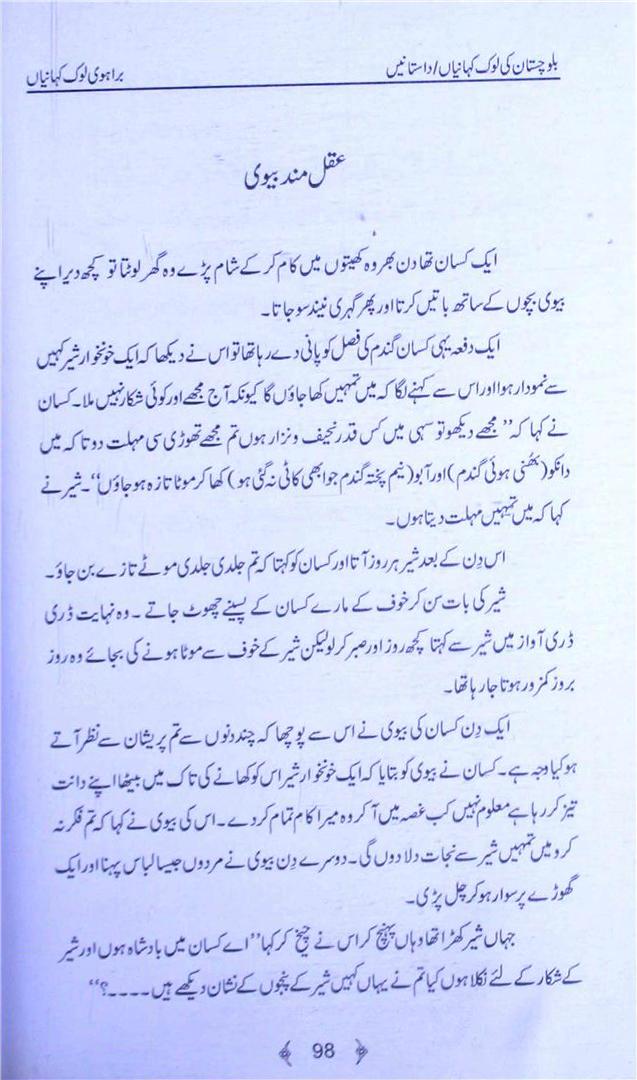 بلوچستان کی لوک کہانیاں/داستانیں
براہوی لوک کہانیاں
عقل مند بیوی
ایک کسان تھا دن بھر وہ کھیتوں میں کام کر کے شام پڑے وہ گھر لوٹتا تو کچھ دیر اپنے
بیوی بچوں کے ساتھ باتیں کرتا اور پھر گہری نیند سو جاتا۔
ایک دفعہ یہی کسان گندم کی فصل کو پانی دے رہا تھا تو اس نے دیکھا کہ ایک خونخوار شیر کہیں
سے نمودار ہوا اور اس سے کہنے لگا کہ میں تمہیں کھا جاؤں گا کیونکہ آج مجھے اور کوئی شکار نہیں ملا۔ کسان
نے کہا کہ ’’مجھے دیکھو تو سہی میں کس قدر نحیف و نزار ہوں تم مجھے تھوڑی سی مہلت دو تا کہ میں
دانکو (بھُنی ہوئی گندم) اور آبو (نیم پختہ گندم جو ابھی کاٹی نہ گئی ہو) کھا کر موٹا تازہ ہو جاؤں‘‘۔ شیر نے
کہا کہ میں تمہیں مہلت دیتا ہوں۔
اس دِن کے بعد شیر ہر روز آتا اور کسان کو کہتا کہ تم جلدی جلدی موٹے تازے بن جاؤ۔
شیر کی بات سن کر خوف کے مارے کسان کے پسینے چھوٹ جاتے ۔ وہ نہایت ڈری
ڈری آواز میں شیر سے کہتا کچھ روز اور صبر کر لو لیکن شیر کے خوف سے موٹا ہونے کی بجائے وہ روز
بروز کمزور ہوتا جا رہا تھا۔
ایک دِن کسان کی بیوی نے اس سے پوچھا کہ چند دنوں سے تم پریشان سے نظر آتے
ہو کیا وجہ ہے۔ کسان نے بیوی کو بتایا کہ ایک خونخوار شیر اس کو کھانے کی تاک میں بیٹھا اپنے دانت
تیز کر رہا ہے معلوم نہیں کب غصہ میں آ کر وہ میرا کام تمام کر دے۔ اس کی بیوی نے کہا کہ تم فکر نہ
کرو میں تمہیں شیر سے نجات دلا دوں گی۔ دوسرے دِن بیوی نے مردوں جیسا لباس پہنا اور ایک
گھوڑے پر سوار ہو کر چل پڑی۔
جہاں شیر کھڑا تھا وہاں پہنچ کر اس نے چیخ کر کہا ’’اے کسان میں بادشاہ ہوں اور شیر
کے شکار کے لئے نکلا ہوں کیا تم نے یہاں کہیں شیر کے پنجوں کے نشان دیکھے ہیں ۔۔۔۔؟‘‘
98